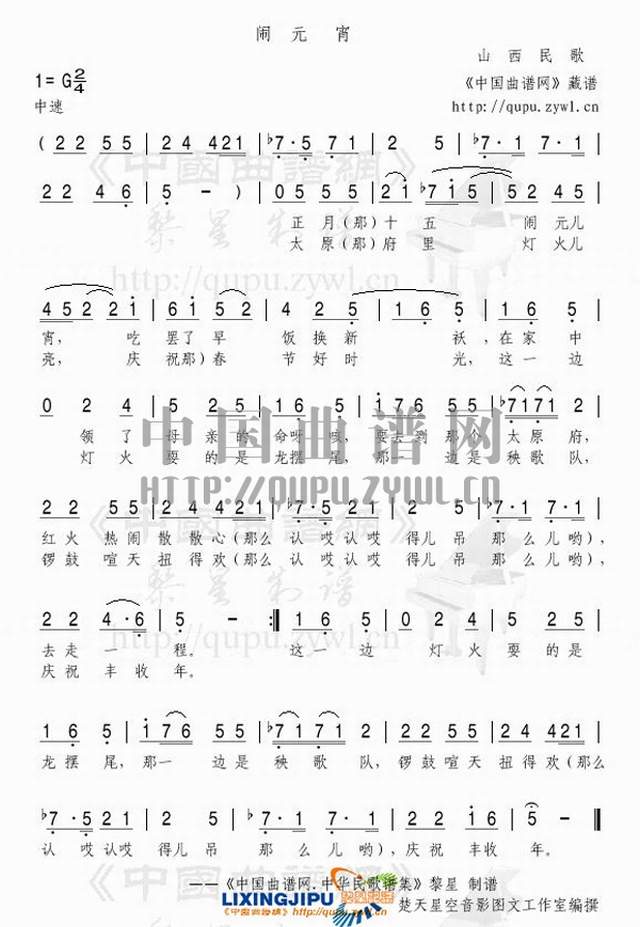 闹元宵
山西民歌
1=G 2/4
《中国曲谱网》藏谱
中速
http://qupu.zywl.cn
( 2 2 5 5 | 2 4 4 2 1 | ♭7 · 5 | 2 5 | ♭7 · 1 |
2 2 4 6 | 5 - ) | 0 5 5 5 | 2 1 ♭7 1 5 | 5 2 4 5 |
正月(那)十五 闹元儿
太原(那)府里 灯火儿
4 5 2 2 1 | 6 1 5 2 | 5 2 2 | 1 6 5 | 1 6 5 |
宵, 吃罢了早 饭换新 袄,在家中
亮, 庆祝那)春 节好时 光,这一边
0 2 4 | 5 2 5 | 1 6 5 | 1 7 6 5 | ♭7 1 7 1 2 |
领了 母亲的 命呀咳, 要去到那个太原府,
灯火 耍的是 龙摆尾, 那一边是秧歌队,
2 2 2 | 5 5 2 4 | 4 2 1 ♭7 · 5 | 2 2 1 5 | ♭7 · 1 |
红火 热闹散散心(那么 认哎认哎 得儿吊 那么儿哟),
锣鼓喧天扭得欢(那么 认哎认哎 得儿吊 那么儿哟),
2 2 | 4 · 6 | 5 - :‖ 1 6 5 | 0 2 4 | 5 2 5 |
去走一程。 这一边 灯火耍的是
庆祝丰收年。
1 6 5 | 1 7 6 5 | ♭7 1 7 1 2 | 2 2 5 5 | 2 4 4 2 1 |
龙摆尾,那一 边是秧歌队,锣鼓喧天扭得欢(那么
♭7 · 5 2 1 | 2 5 | ♭7 · 1 | 2 2 | 1 6 | 5 - ‖
认哎认哎得儿吊 那么儿哟),庆祝丰收年。
——《中国曲谱网.中华民歌谱集》黎星 制谱
LIXINGJIPU
《中国曲谱网》
楚天星空音影图文工作室编撰
中国曲谱网
HTTP://QUPU.ZYWL.CN
《中國曲譜網》
黎星制谱
http://qupu.zywl.cn